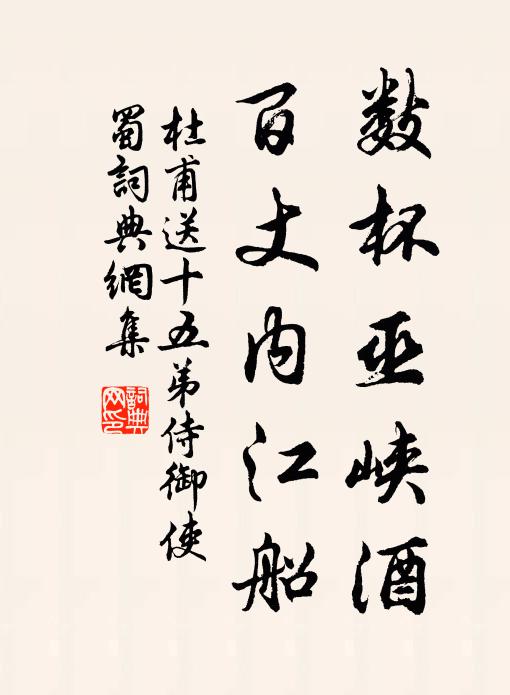 数杯巫峡酒
百丈内江船
杜甫送十五弟侍御使
蜀詞典網集
詞典网印